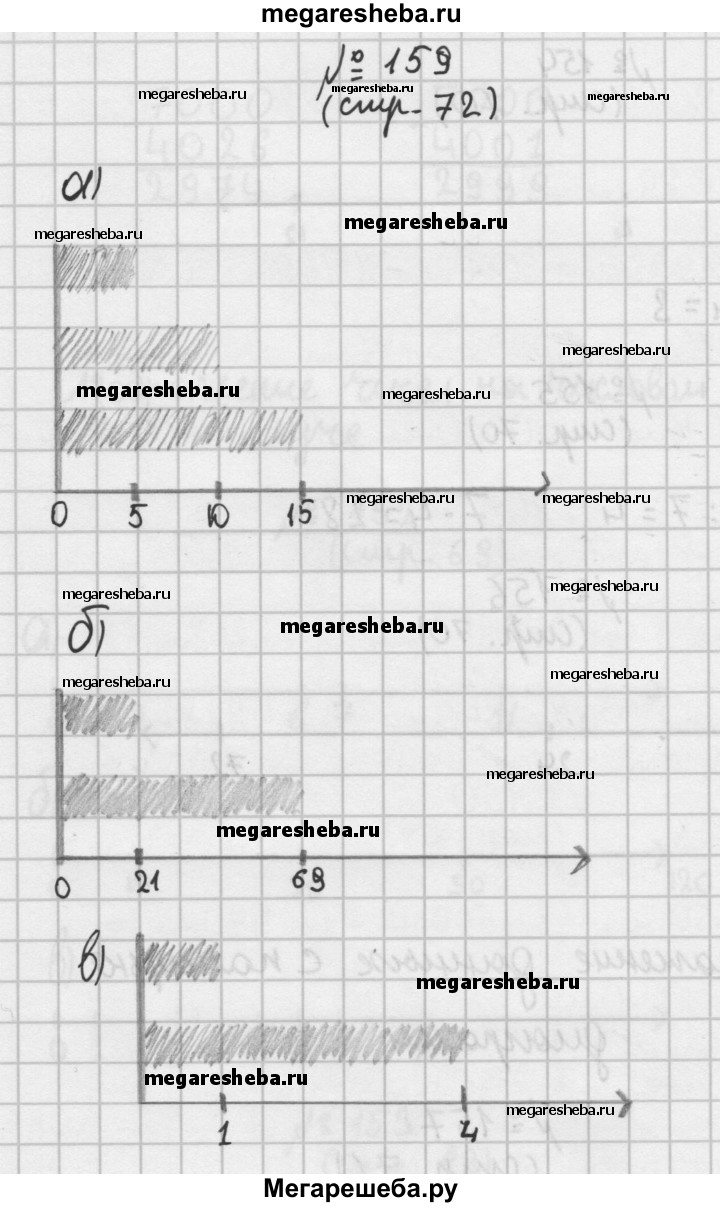 megaresheba.ru
№ 159
megaresheba.ru megaresheba.ru megaresheba.ru
(стр. 72)
а)
megaresheba.ru
megaresheba.ru
megaresheba.ru
megaresheba.ru megaresheba.ru
megaresheba.ru megaresheba.ru
0 5 10 15
megaresheba.ru megaresheba.ru
б) megaresheba.ru
megaresheba.ru megaresheba.ru
megaresheba.ru
megaresheba.ru
0 21 69
в)
megaresheba.ru
megaresheba.ru
megaresheba.ru
1 4
Мегарешеба.ру